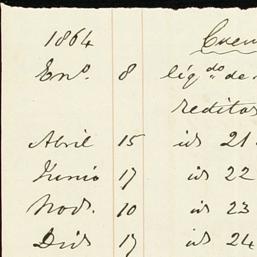 1864 Cuen
Eno. 8 liqdo de
reditos
Abril 15 id 21
Junio 17 id 22
Nov. 10 id 23
Did 17 id 24